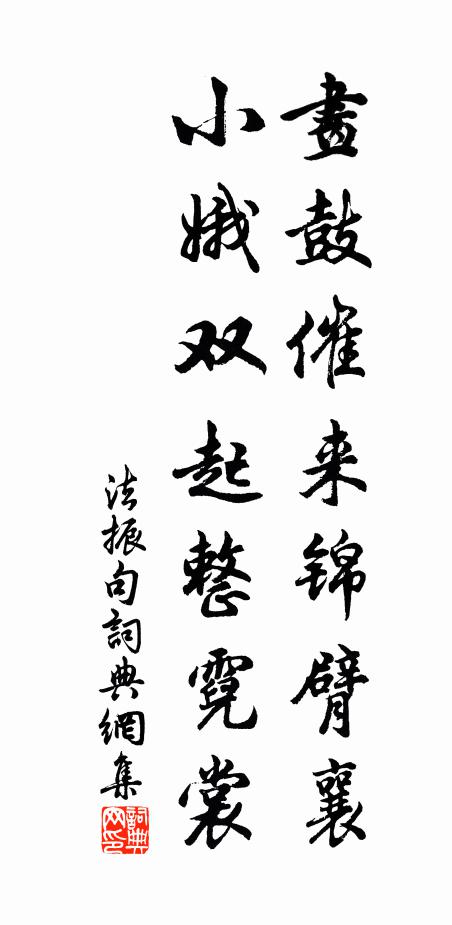 畫鼓催来锦臂襄
小娥双起整霓裳
法振句詞典網集
詞典网印